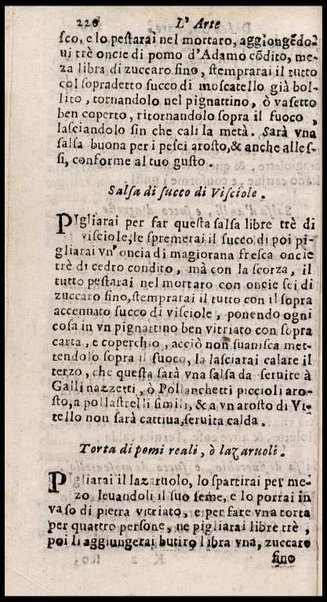 226 L'Arte
sco, e lo pestarai nel mortaro, aggiongẽdo-
ui trè oncie di pomo d'Adamo cõdito, me-
za libra di zuccaro fino, stemprarai il tutto
col sopradetto succo di moscatello già bol-
lito, tornandolo nel pignattino, ò vasetto
ben coperto, ritornandolo sopra il fuoco,
lasciandolo sin che cali la metà. Sarà vna
salsa buona per i pesci arosto, & anche alles-
si, conforme al tuo gusto.
Salsa di succo di Visciole.
PIgliarai per far questa salsa libre trè di
visciole, le spremerai il succo, di poi pi-
gliarai vn'oncia di magiorana fresca oncie
trè di cedro condito, mà con la scorza, il
tutto pestarai nel mortaro con oncie sei di
zuccaro fino, stemprarai il tutto con il sopra
accennato succo di visciole, ponendo ogni
cosa in vn pignattino ben vitriato con sopra
carta, e coperchio, acciò non suanisca met-
tendolo sopra il fuoco, la lasciarai calare il
terzo, che questa sarà vna salsa da seruire à
Gallinazzetti, ò Pollanchetti piccioli aro-
sto, a pollastrelli simili, & a vn arosto di Vi-
tello non sarà cattiua, seruita calda.
Torta di pomi reali, ò lazaruoli.
PIgliarai il lazaruolo, lo spartirai per me-
zo leuandoli il suo seme, e lo porrai in
vaso di pietra vitriato, e per fare vna torta
per quattro persone, ne pigliarai libre trè,
poi li aggiungerai butiro libra vna, zuccaro
fino